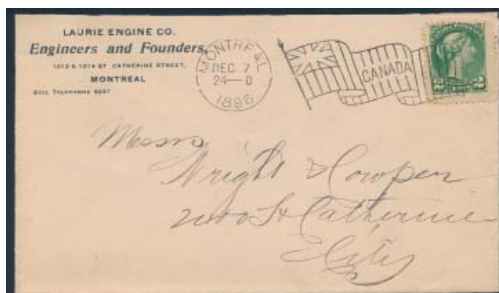 LAURIE ENGINE CO.
Engineers and Founders,
1012 & 1014 ST. CATHERINE STREET,
MONTREAL
BELL TELEPHONE
MONTREAL
DEC 7
24-0
1896
CANADA
2 2
Messrs
Wright &
St Catherine
City